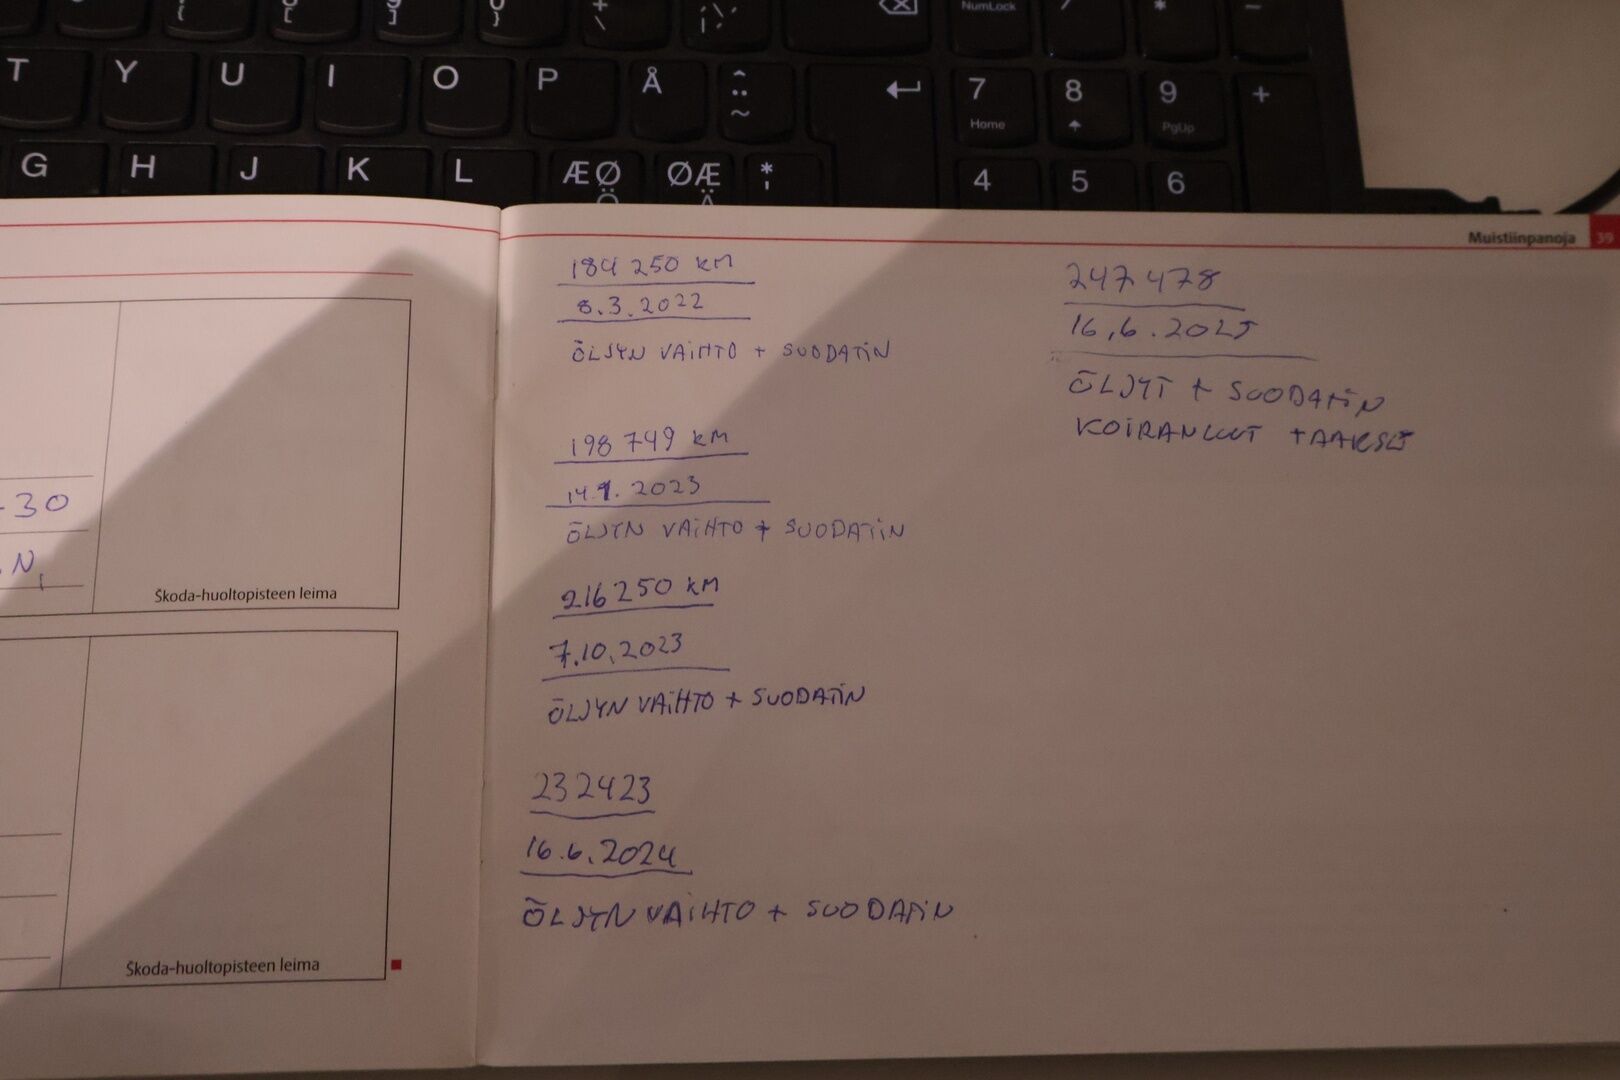 NumLock
T Y U I O P Å ^ ¨ ~ 7 Home 8 9 PgUp +
G H J K L ÆØ Ö ØÆ Ä * ' 4 5 6
-30
.N,
Škoda-huoltopisteen leima
Škoda-huoltopisteen leima
Muistiinpanoja 39
184 250 KM
8.3.2022
ÖLJYN VAIHTO + SUODATIN
198 749 KM
14.1.2023
ÖLJYN VAIHTO + SUODATIN
216 250 KM
7.10.2023
ÖLJYN VAIHTO + SUODATIN
232423
16.6.2024
ÖLJYN VAIHTO + SUODATIN
247 478
16.6.2025
ÖLJYT + SUODATIN
KOIRANLUUT TAAKSE